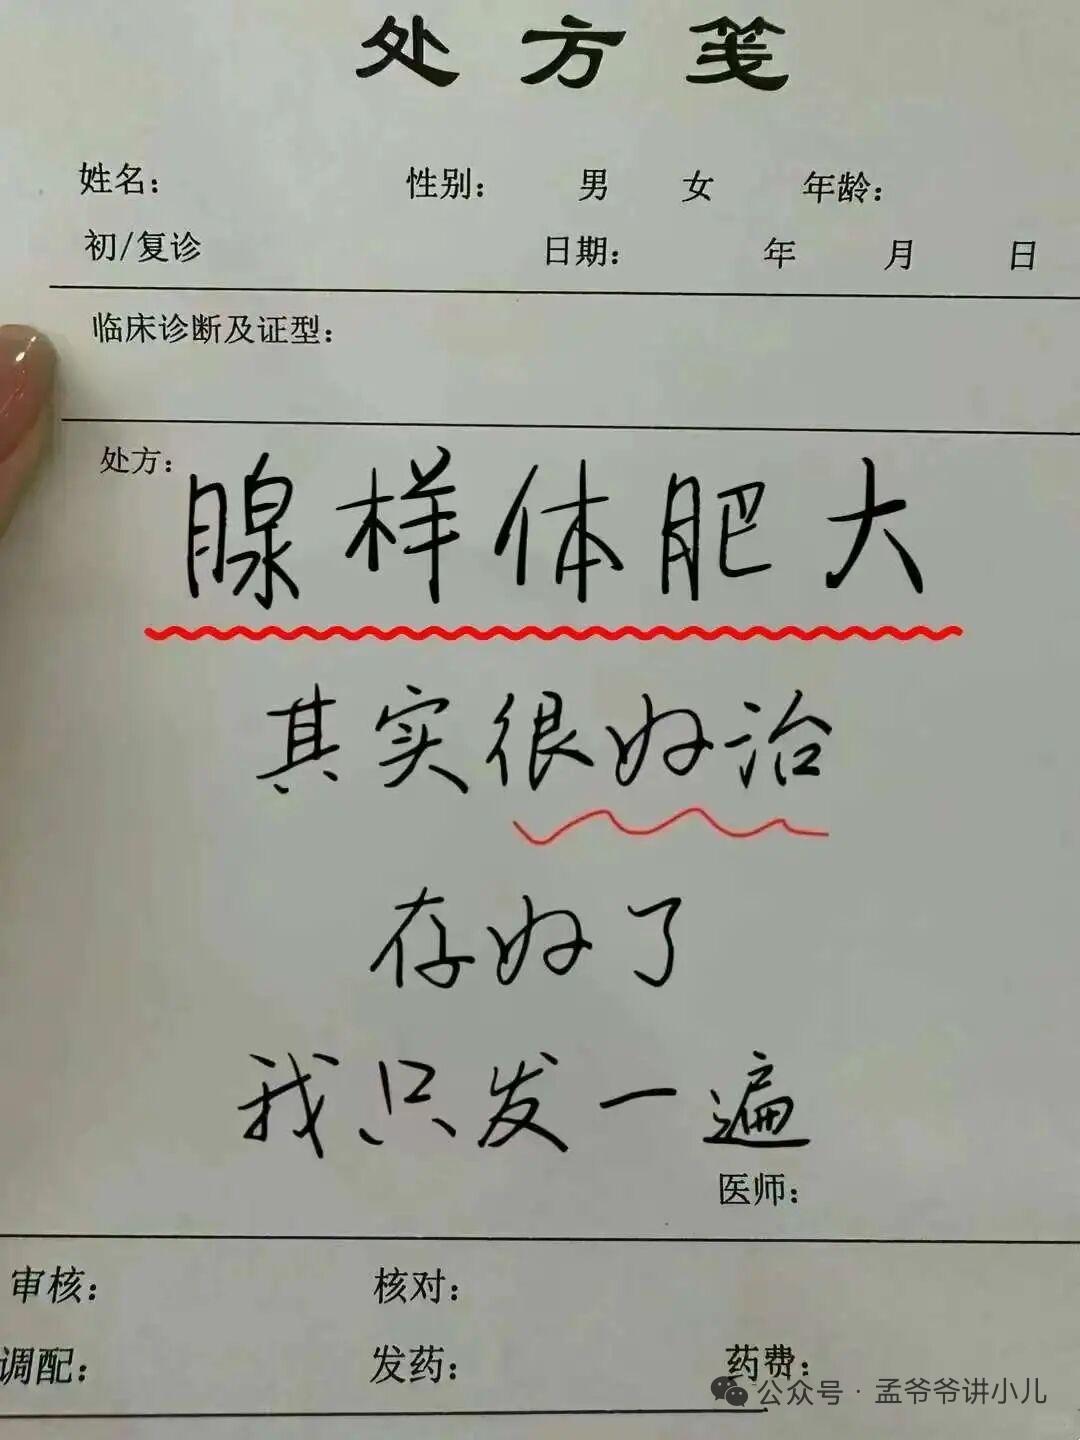 处方笺
姓名： 性别： 男 女 年龄：
初/复诊 日期： 年 月 日
临床诊断及证型：
处方：
腺样体肥大
其实很好治
存好了
我只发一遍
医师：
审核： 核对：
调配： 发药： 药费：
公众号·孟爷爷讲小儿